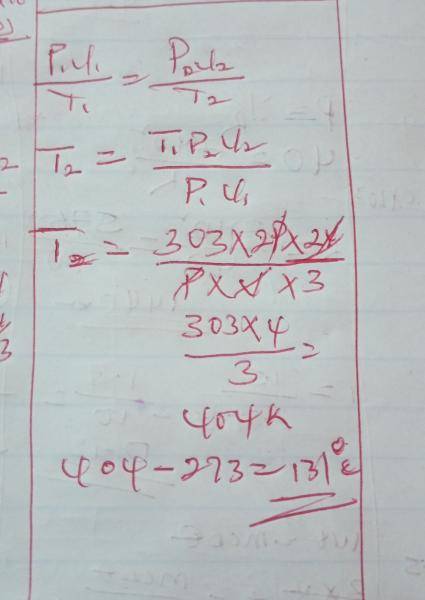 P₁V₁/T₁ = P₂V₂/T₂
T₂ = T₁P₂V₂/P₁V₁
T₂ = 303×2P×2V/P×V×3
303×4/3 =
404K
404-273=131°C